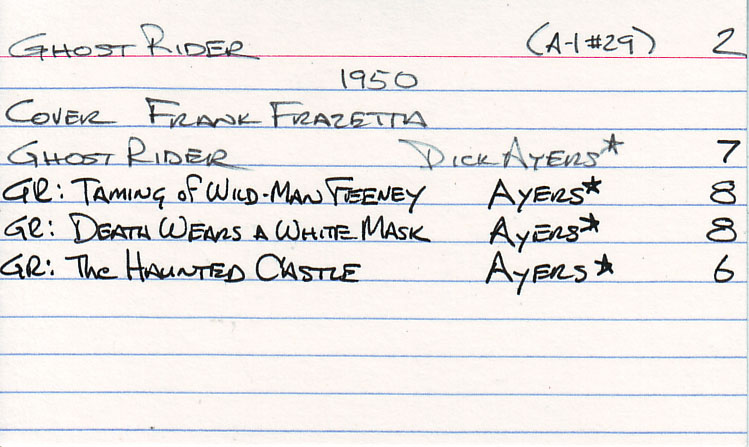 GHOST RIDER (A-1 #29) 2
1950
COVER FRANK FRAZETTA
GHOST RIDER DICK AYERS* 7
GR: TAMING of WILD-MAN FEENEY AYERS* 8
GR: DEATH WEARS A WHITE MASK AYERS* 8
GR: The HAUNTED CASTLE AYERS* 6